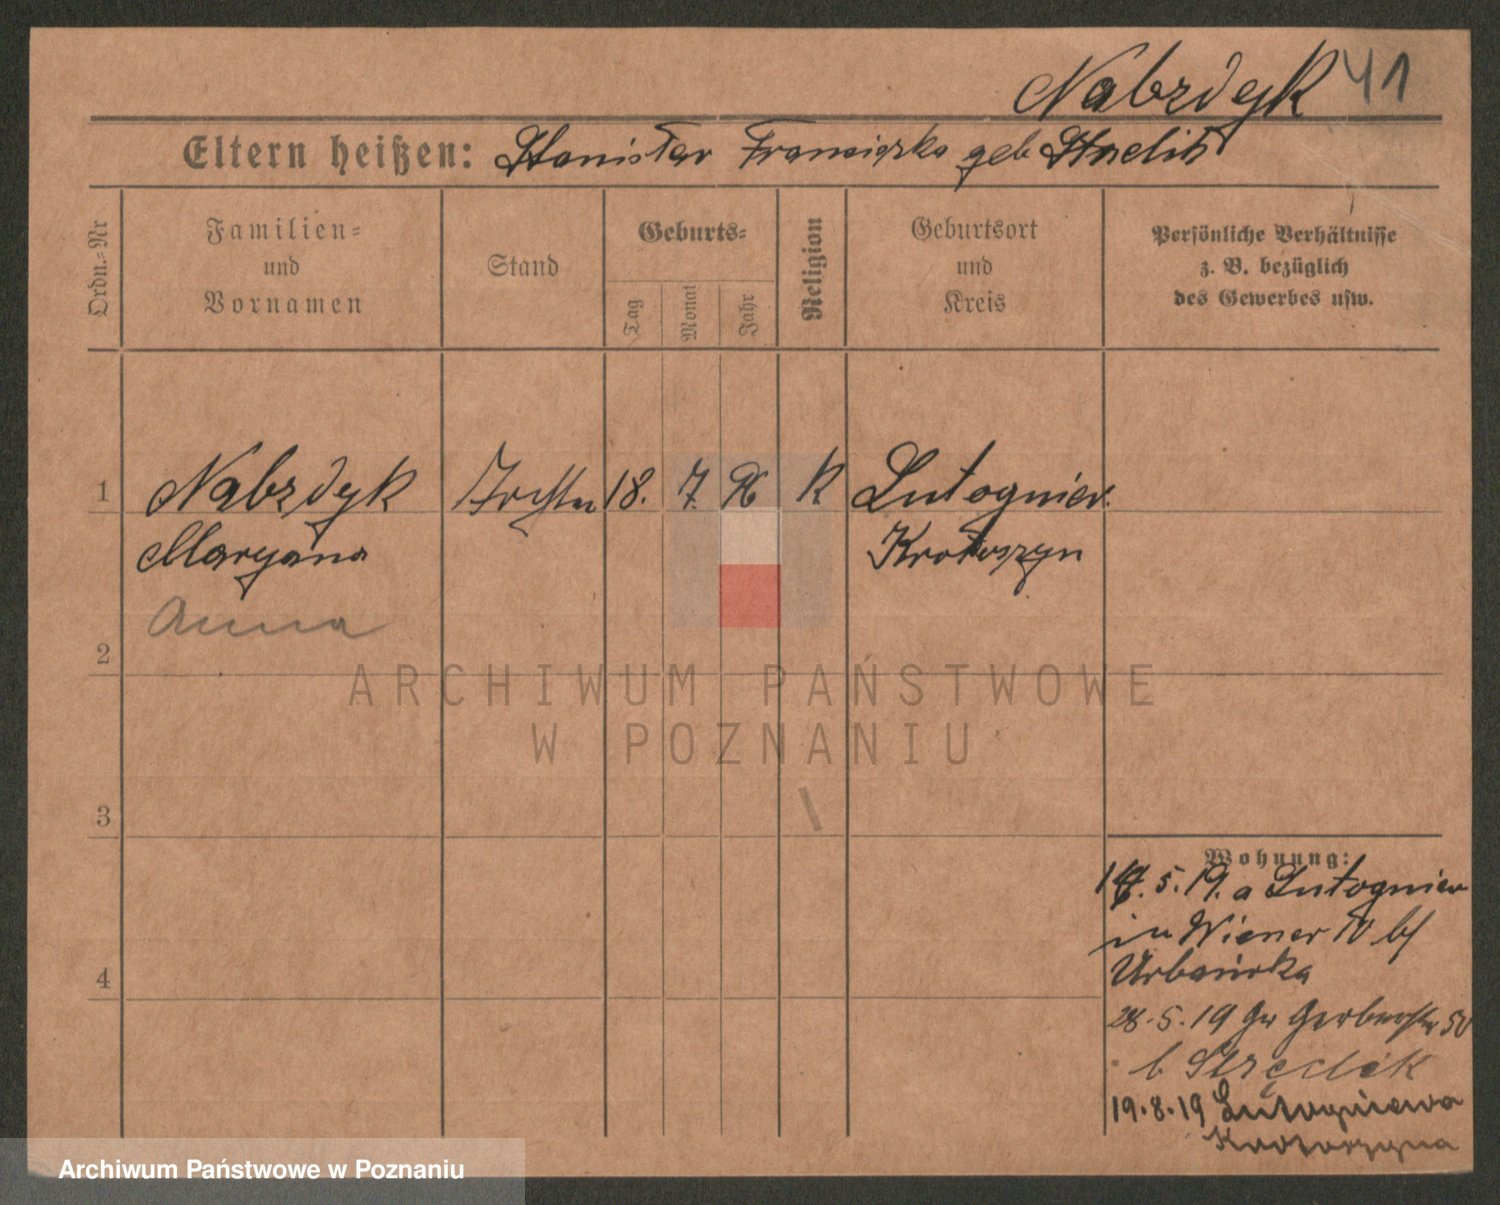 Nabzdyk 41
Eltern heißen: Stanisłav Franciszka geb
Ordn.-Nr
Familien-
und
Vornamen
Stand
Geburts-
Tag
Monat
Jahr
Religion
Geburtsort
und
Kreis
Persönliche Verhältnisse
z. B. bezüglich
des Gewerbes usw.
1
Nabzdyk 18. 7. 96 K Lutogniew.
Maryana Krotoszyn
Anna
2
3
4
Wohnung:
5. 19. a Lutogniew
in Wiener bf
28. 5. 19 Gr Gerberstr 50
b
19.8.19 Lutogniewa
Krotoszyna
ARCHIWUM PAŃSTWOWE
W POZNANIU
Archiwum Państwowe w Poznaniu